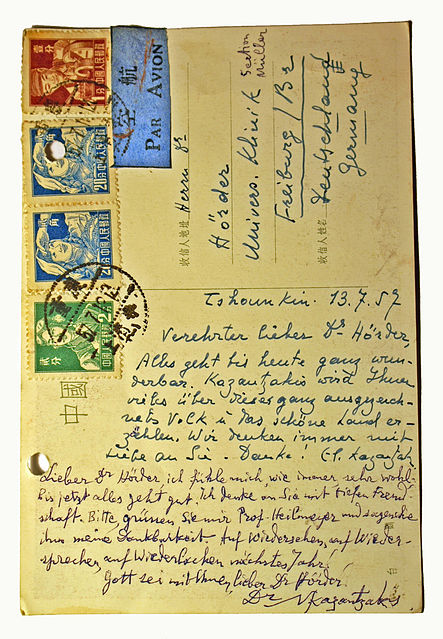 航空
PAR AVION
壹分
中國人民郵政
20分 中國人民郵政
20分 中國人民郵政
貳分
中國
收信人地址
收信人姓名
Herrn Dr
Hörder
Univers. Klinik
Section Müller
Freiburg / Br
Deutschland
Germany
Tshounkin. 13.7.57
Verehrter lieber Dr Hörder,
Alles geht bis heute ganz wun-
derbar. Kazantzakis wird Ihnen
vieles über dieses ganz ausgezeich-
nete Volk u das schöne Land er-
zählen. Wir denken immer mit
Liebe an Sie - Danke! El. Kazantzaki
Lieber Dr Hörder, ich fühle mich, wie immer, sehr wohl.
Bis jetzt alles geht gut. Ich denke an Sie mit tiefen Freund-
schaft. Bitte, grüssen Sie mir Prof. Heilmeyer und sagen Sie
ihm meine Dankbarkeit. Auf Wiedersehen, auf Wieder-
sprechen, auf Wiederlachen nächstes Jahr.
Gott sei mit Ihnen, lieber Dr Hörder!
Dr NKazantzakis